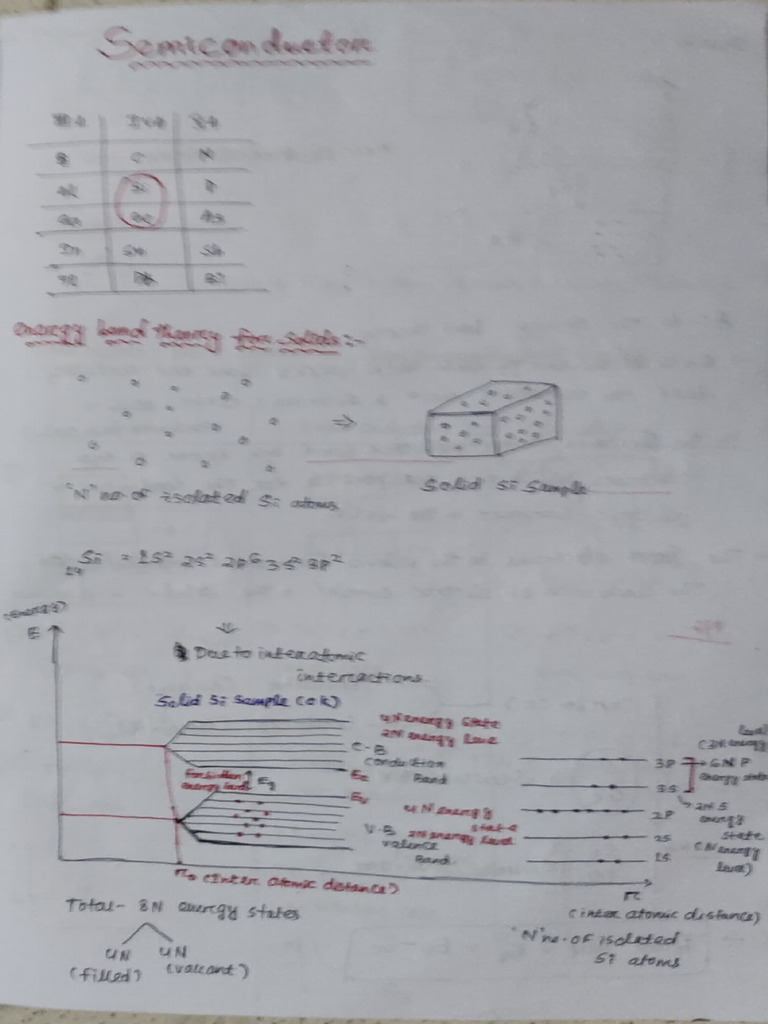 Semiconductor
IIIA IVA VA
B C N
Al Si P
Ga Ge As
In Sn Sb
Tl Pb Bi
energy band theory for solids :-
"N" no of isolated Si atoms
Solid Si Sample
14Si = 1S² 2S² 2P⁶ 3S² 3P²
(energy)
E
Due to interatomic
interactions
Solid Si Sample (0K)
4N energy State
2N energy level
C-B
Conduction
Band
forbidden
energy level
Eg
Ec
Ev
4N energy
state
2N energy level
V.B
valence
Band
3P
3S
2P
2S
1S
level)
(3N energy
6N P
energy state
2N S
energy
state
(N energy
level)
r₀ (Inter atomic distance)
r
(inter atomic distance)
"N" no. of isolated
Si atoms
Total- 8N energy states
4N 4N
(filled) (vaccant)